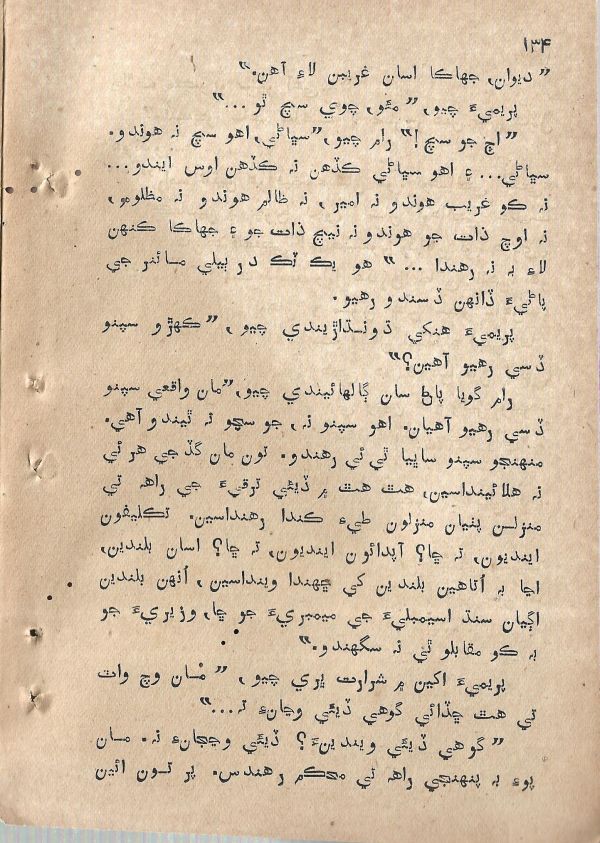 ۱۳۴
”ديوان، جهاڪا اسان غريبن لاءِ آهن.“
پريميءَ چيو، ”مئو، چوي سچ ٿو ...“
”اڄ جو سچ!“ رام چيو، ”سڀاڻي، اهو سچ نہ هوندو.
سڀاڻي... ۽ اهو سڀاڻي ڪڏهن نہ ڪڏهن اوس ايندو...
نہ ڪو غريب هوندو نہ امير، نہ ظالم هوندو نہ مظلوم،
نہ اوچ ذات جو هوندو نہ نيچ ذات جو ۽ جهاڪا ڪنهن
لاءِ بہ نہ رهندا ...“ هو يڪ ٽڪ در ٻيلي مائنر جي
پاڻيءَ ڏانهن ڏسندو رهيو.
پريميءَ هنکي ڌونڌاڙيندي چيو، ”ڪهڙو سپنو
ڏسي رهيو آهين؟“
رام گويا پاڻ سان ڳالهائيندي چيو، ”مان واقعي سپنو
ڏسي رهيو آهيان. اهو سپنو نہ، جو سچو نہ ٿيندو آهي.
منهنجو سپنو ساڀيا ٿي ئي رهندو. تون مان گڏجي هر ئي
نہ هلائينداسين، هٿ هٿ ۾ ڏيئي ترقيءَ جي راهہ تي
منزلن پٺيان منزلون طيءَ ڪندا رهنداسين. تڪليفون
اينديون، تہ ڇا؟ آپدائون اينديون، تہ ڇا؟ اسان بلندين،
اڃا بہ اُتاهين بلندين کي ڇهندا وينداسين، اُنهن بلندين
اڳيان سنڌ اسيمبليءَ جي ميمبريءَ جو ڇا، وزيريءَ جو
بہ ڪو مقابلو ٿي نہ سگهندو.“
پريميءَ اکين ۾ شرارت ڀري چيو، ”مُسان وچ واٽ
تي هٿ ڇڏائي گوهي ڏيئي وڃانءِ تہ...“
”گوهي ڏيئي ويندينءَ؟ ڏيئي وڃجانءِ نہ. مان
پوءِ بہ پنهنجي راهہ تي محڪم رهندس. پر تون ائين